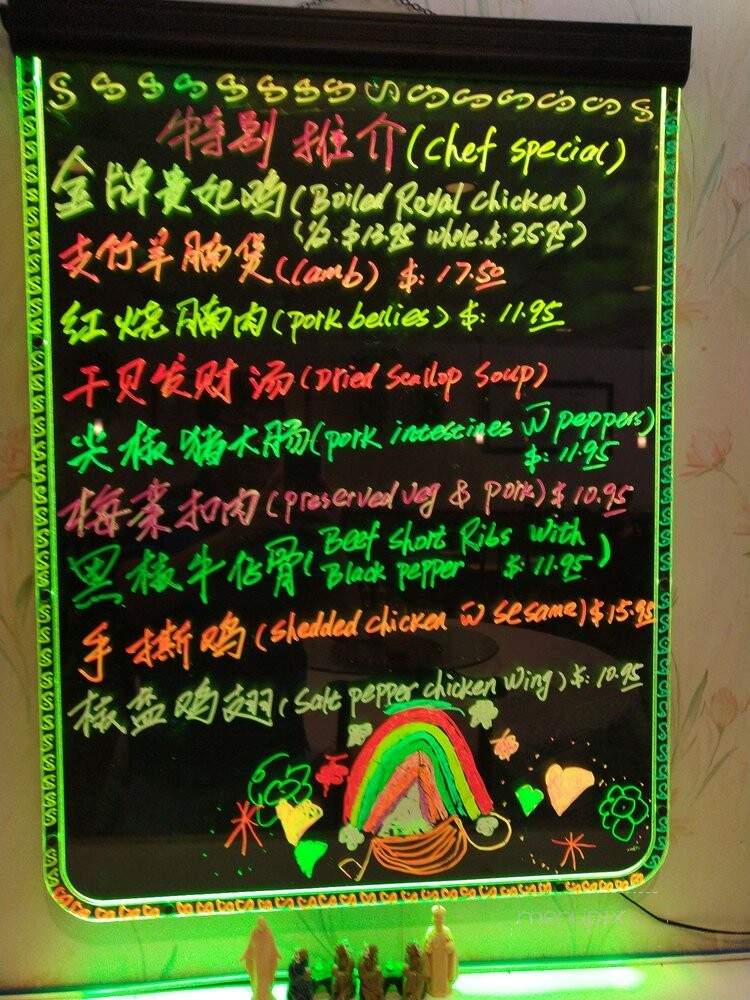 特别推介(chef special)
金牌贵妃鸡(Boiled Royal chicken)
(½.$13.95 whole.$:25.95)
支竹羊腩煲(lamb) $: 17.50
红烧腩肉(pork bellies) $: 11.95
干贝发财汤(Dried Scallop Soup)
尖椒猪大肠(pork intestines w̄ peppers)
$: 11.95
梅菜扣肉(preserved veg & pork) $ 10.95
黑椒牛仔骨(Beef Short Ribs with
Black pepper $: 11.95)
手撕鸡(shedded chicken w̄ sesame) $15.95
椒盐鸡翅(Salt pepper chicken wing) $: 10.95
menupix